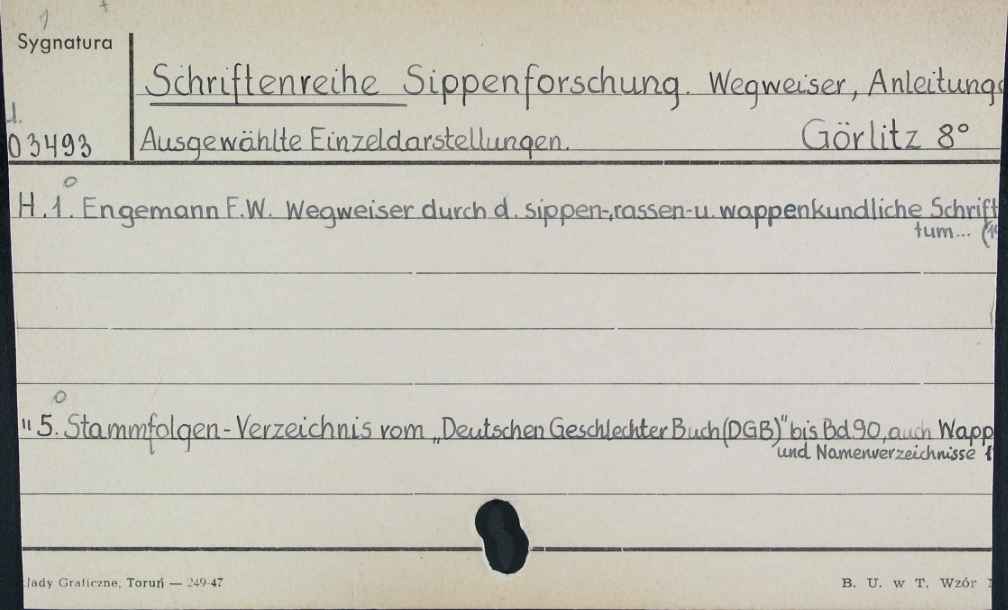 Sygnatura
Schriftenreihe Sippenforschung. Wegweiser, Anleitung
03493 Ausgewählte Einzeldarstellungen. Görlitz 8°
H. 1. Engemann F.W. Wegweiser durch d. sippen-, rassen- u. wappenkundliche Schrift
tum...
" 5. Stammfolgen-Verzeichnis vom „Deutschen Geschlechter Buch (DGB)" bis Bd. 90, auch Wapp
und Namenverzeichnisse
łady Graficzne, Toruń — 249-47 B. U. w T. Wzór